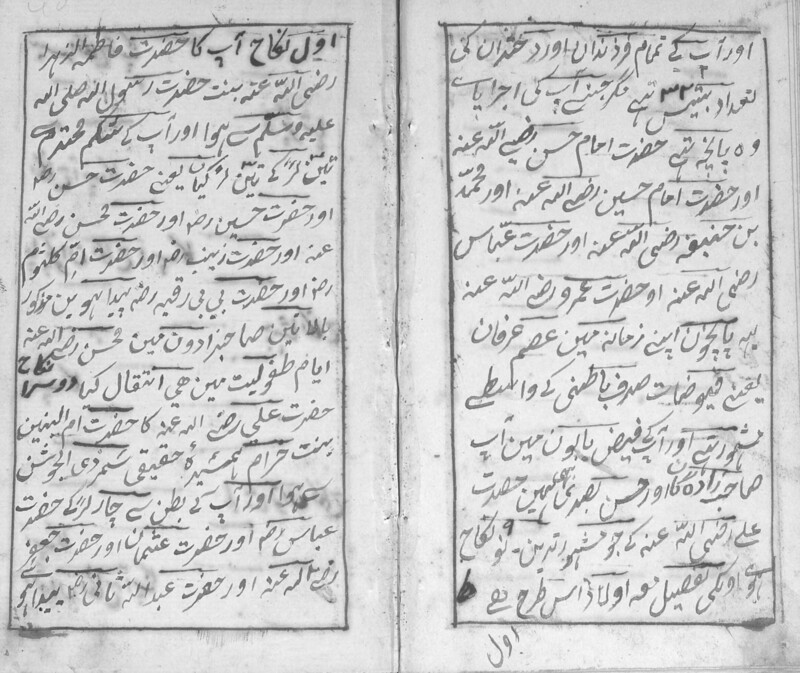 اور آپ کے تمام فرزندان اور دختران کی
تعداد بتیس ۳۲ تہے مگر جنسے آپ کی اجرا پائے
وہ پانچ تہے حضرت امام حسن رضے اللہ عنہ
اور حضرت امام حسین رضے اللہ عنہ اور محمّد
بن حنیفہ رضی اللہ عنہ اور حضرت عبّاس
رضی اللہ عنہ او حضرت عمرو رضے اللہ عنہ
یہہ پانچون اپنے زمانہ مین عصم عرفان
یعنے فیوضات صدف باطنی کے واسطے
مشہور تہے اور آپکے فیض یابون مین آپ
صاحبزادہ کا اور حسن بصری بھی ہین حضرت
علے رضی اللہ عنہ کے جو مشہور تہین۔ نو ۹ نکاح
ہوے اونکی تفصیل معہ اولاد اس طرح ہے
اول
اوّل نکاح آپ کا حضرت فاطمہ الزہرا
رضی اللہ عنہ بنت حضرت رسول اللہ صلی اللہ
علیہ وسلّم سے ہوا اور آپ کے شکم محترم سے
تین لڑکے تین لڑکیان یعنے حضرت حسن رضہ
اور حضرت حسین رضہ اور حضرت محسن رضے اللہ
عنہ اور حضرت زینب رضہ اور حضرت امّ کلثوم
رضہ اور حضرت بی بی رقیہ رضہ پیدا ہوین مذکور
بالا تین صاحبزادون مین محسن رضے اللہ عنہ
ایام طفولیت مین ہی انتقال کیا دوسرا نکاح
حضرت علی رضے اللہ عنہ کا حضرت ام البنین
بنت حرام ہمشیرہٴ حقیقی شمر ذی الجوشن
سے ہوا اور آپ کے بطن سے چار لڑکے حضرت
عباس رضہ اور حضرت عثمان اور حضرت جعفر
رضے اللہ عنہ اور حضرت عبد اللہ ثانی رضہ پیدا ہوے